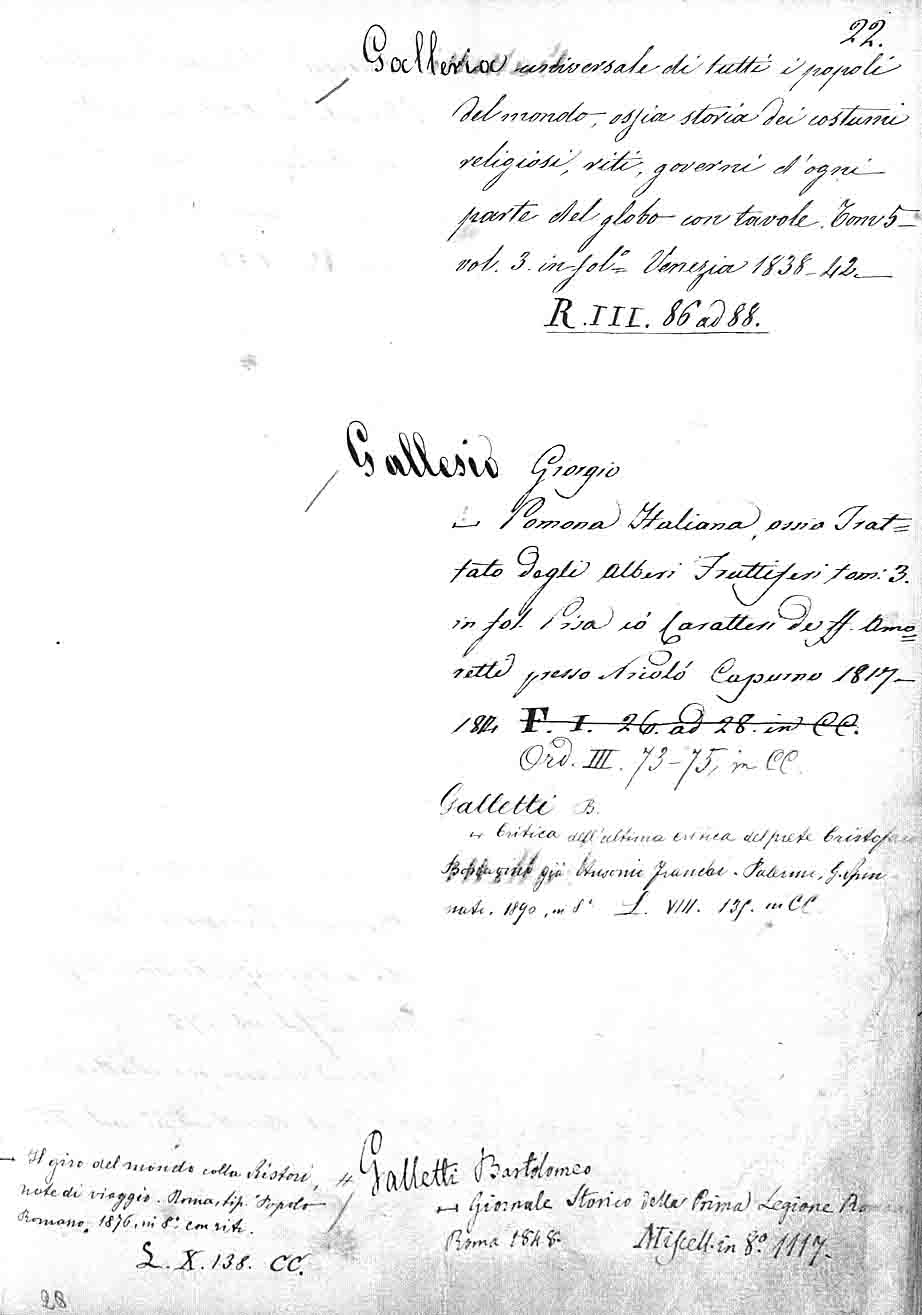 22.
Galleria universale di tutti i popoli
del mondo, ossia storia dei costumi
religiosi, riti, governi d'ogni
parte del globo con tavole. Tom 5
vol. 3. in fol.° Venezia 1838-42.
R. III. 86 ad 88.
Gallesio Giorgio
— Pomona Italiana, ossia Trat=
tato degli Alberi Fruttiferi tom: 3.
in fol. Pisa có Caratteri de ff. Amo=
retti presso Nicoló Capurro 1817-
F. I. 26. ad 28. in CC.
Ord. III. 73-75, in CC.
Galletti B.
— Critica dell'ultima critica del prete Cristoforo
già Ausonio Franchi. Palermo, G. Spin
nato, 1890, in 8° L. VIII. 135. in CC.
— Il giro del mondo colla Ristori,
note di viaggio. Roma, tip. Popolo
Romano, 1876, in 8° con ritr.
L. X. 138. CC.
Galletti Bartolomeo
— Giornale Storico della Prima Legione
Roma 1848. Miscell. in 8.° 1117.
28